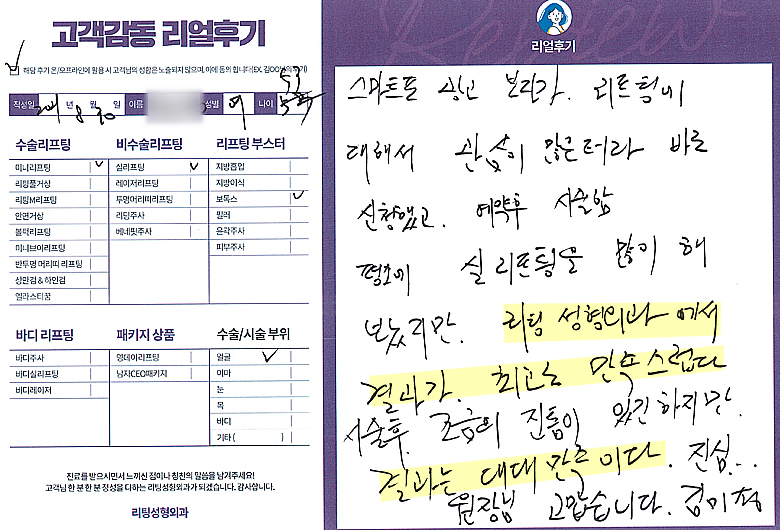 고객감동 리얼후기
해당 후기 온/오프라인에 활용 시 고객님의 성함은 노출되지 않으며, 이에 동의 합니다(EX. 김OO님의 후기)
작성일 2021년 8월 30일 이름 성별 여 나이 53
수술리프팅
미니리프팅
리팅풀거상
리팅M리프팅
안면거상
볼턱리프팅
미니브이리프팅
반투명 머리띠 리프팅
상안검 & 하안검
엘라스티꿈
비수술리프팅
실리프팅
레이저리프팅
투명머리띠리프팅
리팅주사
베네핏주사
리프팅 부스터
지방흡입
지방이식
보톡스
필러
윤곽주사
피부주사
바디 리프팅
바디주사
바디실리프팅
바디레이저
패키지 상품
영데이리프팅
남자CEO패키지
수술/시술 부위
얼굴
이마
눈
목
바디
기타 ( )
진료를 받으시면서 느끼신 점이나 칭찬의 말씀을 남겨주세요!
고객님 한 분 한 분 정성을 다하는 리팅성형외과가 되겠습니다. 감사합니다.
리팅성형외과
리얼후기
스마트폰 광고 보다가. 리프팅에
대해서 관심이 많은터라 바로
신청했고. 예약후 시술함
평소에 실 리프팅을 많이 해
보았지만. 리팅 성형외과 에서
결과가. 최고로 만족스럽다
시술후 조금의 진통이 있긴 하지만.
결과는 대대 만족이다. 진심...
원장님 고맙습니다. 김미정